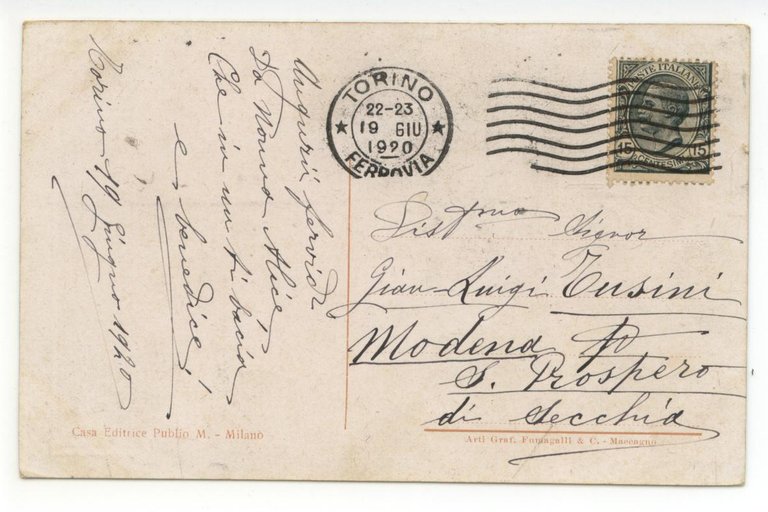 Torino 19 Giugno 1920
Augurii fervidi
Da Nonna Alice
Che in un ti bacia
e benedice!
TORINO
22-23
19 GIU
1920
FERROVIA
POSTE ITALIANE
15 15
CENTESIMI
Signor
Gian Luigi Tusini
Modena
S. Prospero
di Secchia
Casa Editrice Publio M. - Milano
Arti Graf. Fumagalli & C. - Maccagno